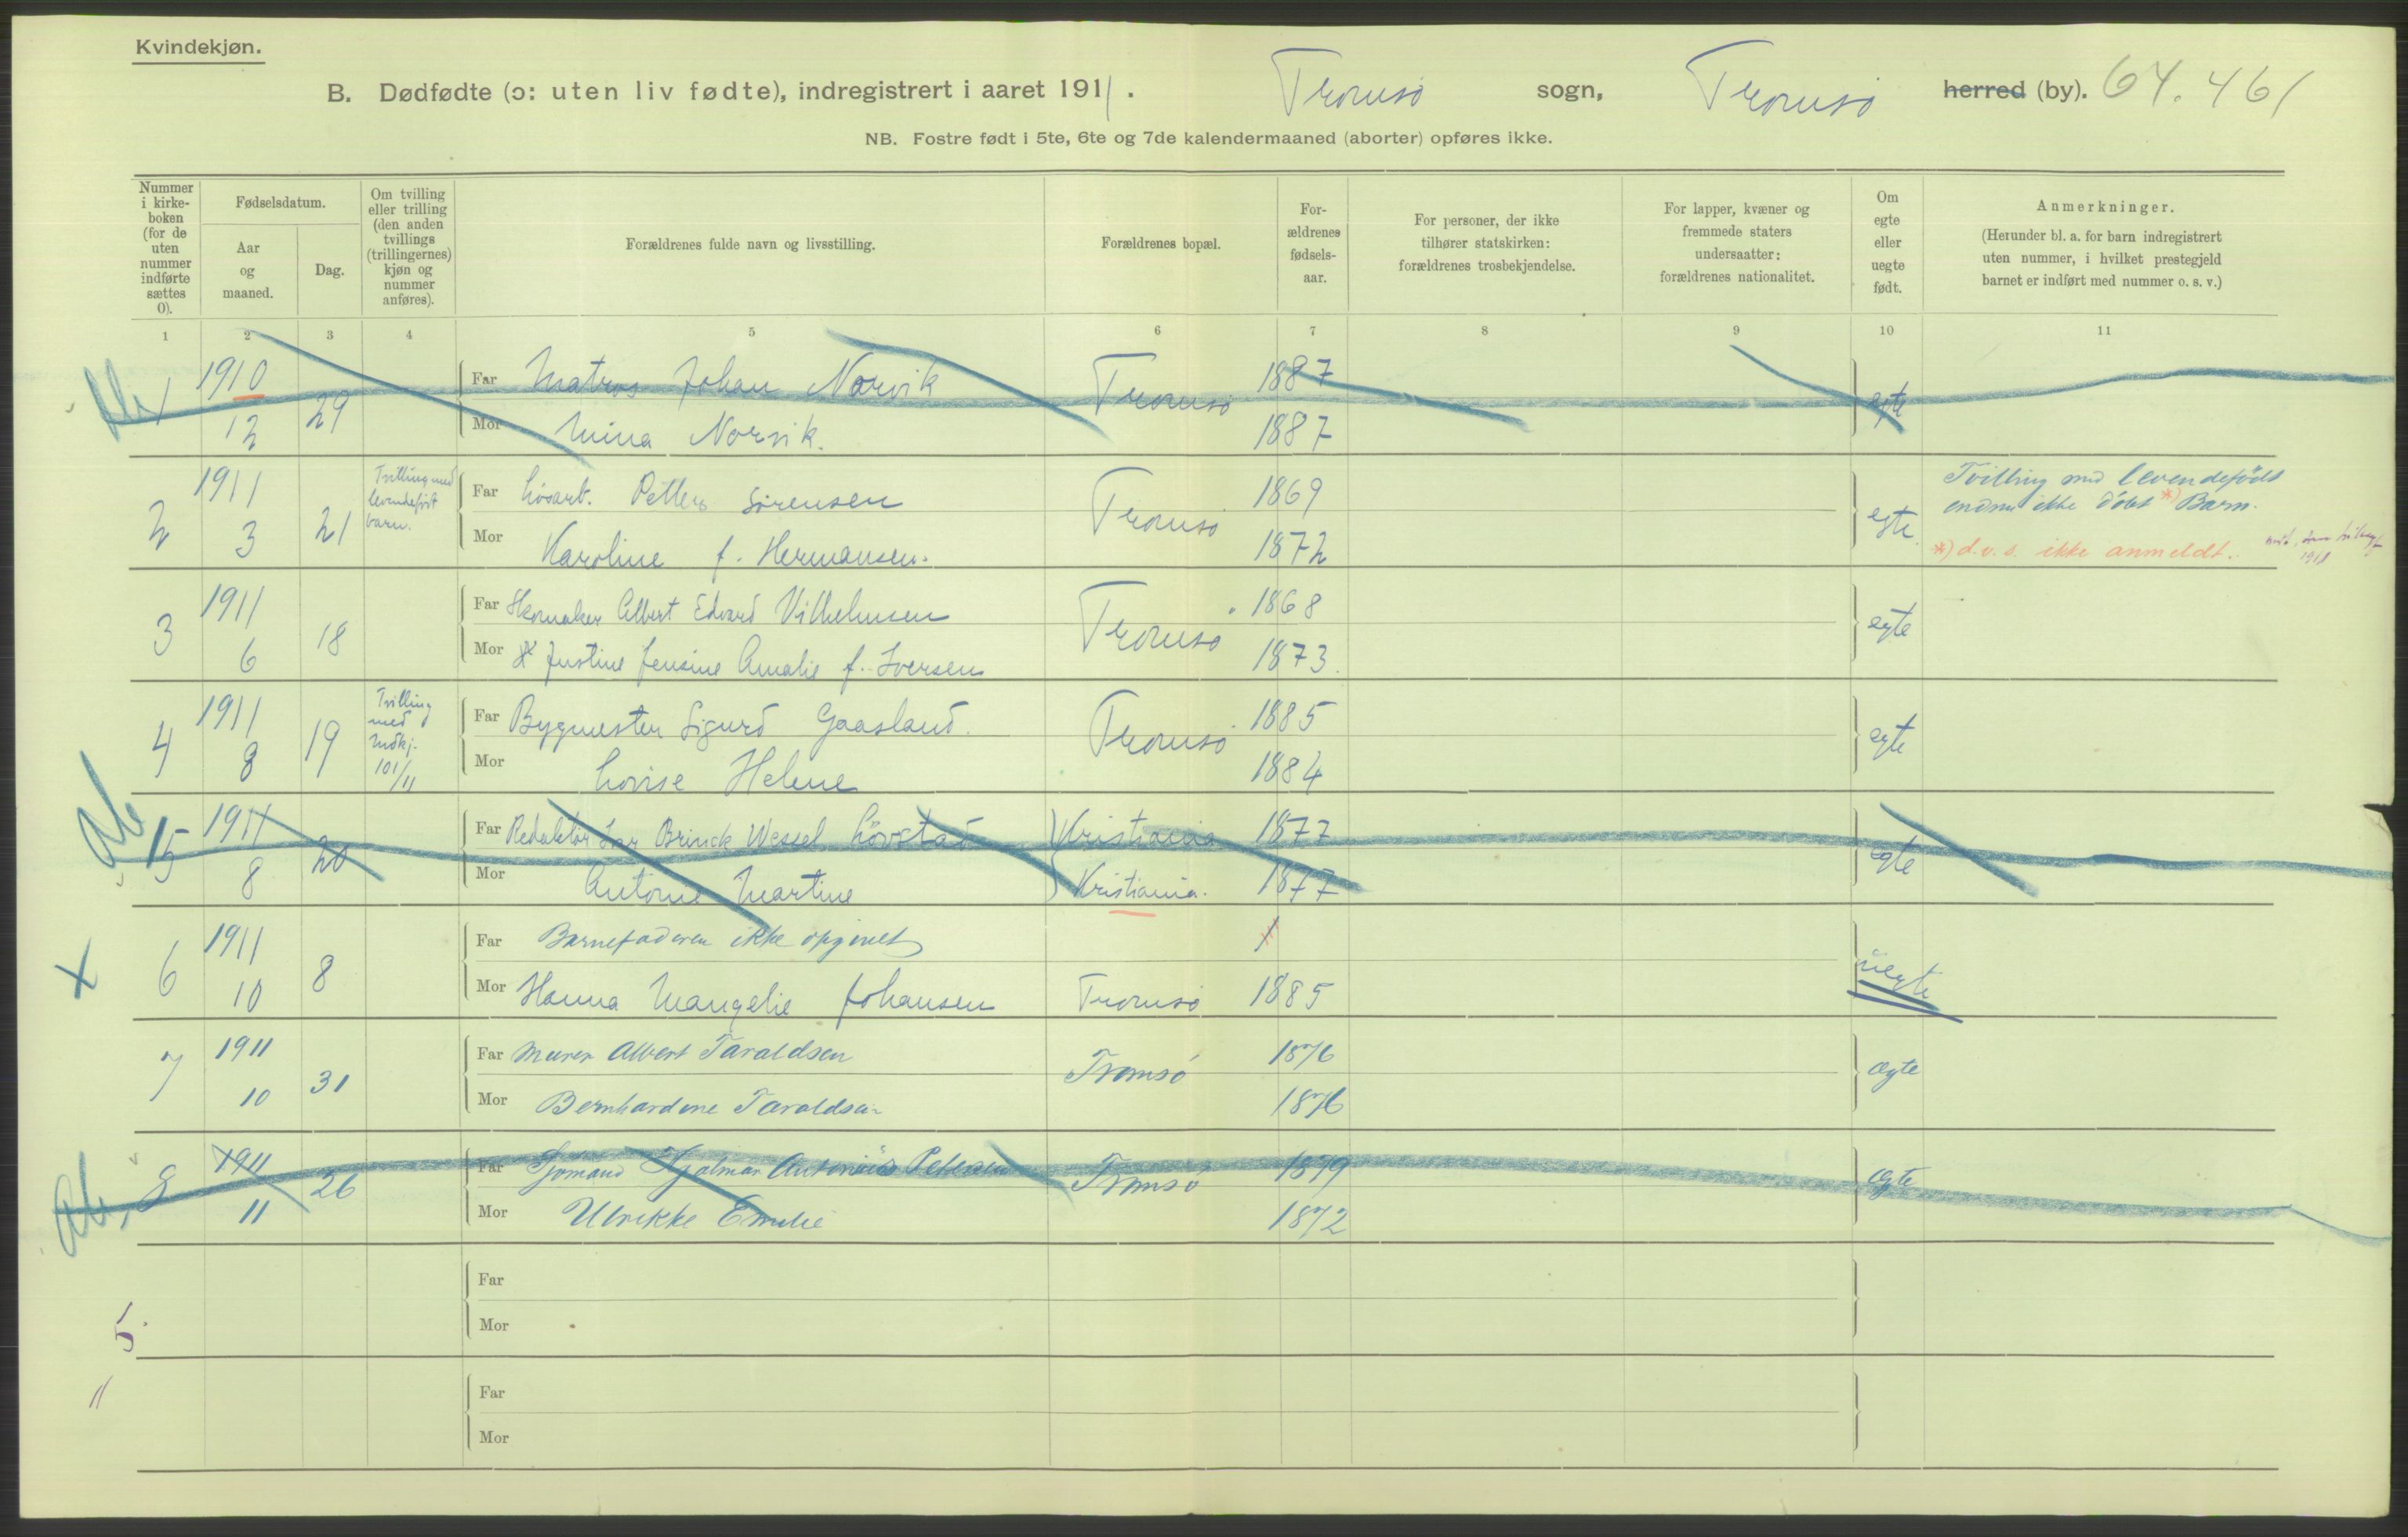 Kvindekjøn.
B. Dødfødte (ɔ: uten liv fødte), indregistrert i aaret 1911. Tromsø sogn, Tromsø herred (by). 64.461
NB. Fostre født i 5te, 6te og 7de kalendermaaned (aborter) opføres ikke.
Nummer i kirke-boken (for de uten nummer indførte sættes 0).
Fødselsdatum.
Aar og maaned.
Dag.
Om tvilling eller trilling (den anden tvillings (trillingernes) kjøn og nummer anføres).
Forældrenes fulde navn og livsstilling.
Forældrenes bopæl.
For-ældrenes fødsels-aar.
For personer, der ikke tilhører statskirken: forældrenes trosbekjendelse.
For lapper, kvæner og fremmede staters undersaatter: forældrenes nationalitet.
Om egte eller uegte født.
Anmerkninger.
(Herunder bl. a. for barn indregistrert uten nummer, i hvilket prestegjeld barnet er indført med nummer o. s. v.)
1 2 3 4 5 6 7 8 9 10 11
1 1910 12 29 Far Matros Johan Norvik Tromsø 1887 egte
Mor Mina Norvik. 1887
2 1911 3 21 Tvilling med levendefødt barn. Far Løsarb. Petter Sørensen Tromsø 1869 egte Tvilling med levendefødt
endnu ikke døbt *) Barn.
Mor Karoline f. Hermansen. 1872 *) d.v.s. ikke anmeldt. 1911
3 1911 6 18 Far Skomaker Albert Edvard Vilhelmsen Tromsø 1868 egte
Mor Justine Jensine Amalie f. Iversen 1873.
4 1911 8 19 Tvilling med Mdkj. 101/11 Far Bygmester Sigurd Gaasland. Tromsø 1885 egte
Mor Lovise Helene 1884
Ab 5 1911 8 20 Far Redaktør Brinck Wessel Løvstad Kristiania 1877 egte
Mor Antonie Martine Kristiania. 1877
x 6 1911 10 8 Far Barnefaderen ikke opgivet uegte
Mor Hanna Mangelie Johansen Tromsø 1885
7 1911 10 31 Far Murer Albert Taraldsen Tromsø 1876 ægte
Mor Bernhardine Taraldsen 1876
Ab. 8 1911 11 26 Far Sjømand Hjalmar Antonius Petersen Tromsø 1879 ægte
Mor Ulrikke Emilie 1872
Far
5. Mor
Far
Mor